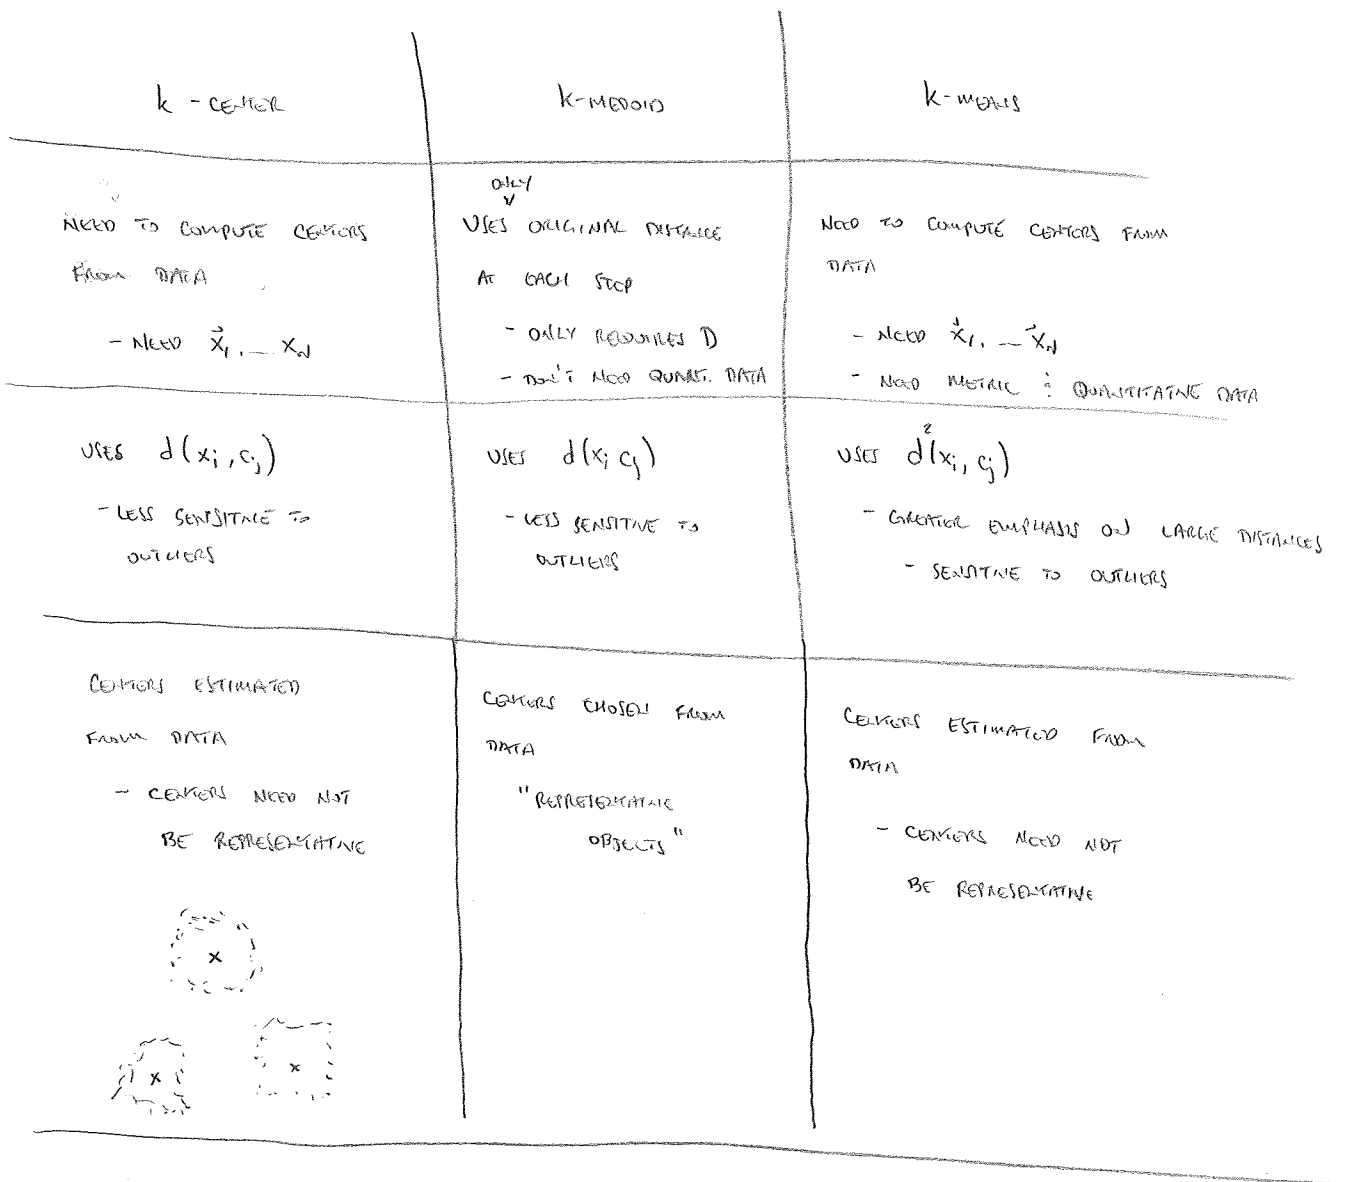 k - CENTER
k-MEDOID
k-MEANS
NEED TO COMPUTE CENTERS
FROM DATA
- NEED x⃗₁, ... xₙ
ONLY
USES ORIGINAL DISTANCE
AT EACH STEP
- ONLY REQUIRES D
- DON'T NEED QUANT. DATA
NEED TO COMPUTE CENTERS FROM
DATA
- NEED x⃗₁, ... x⃗ₙ
- NEED METRIC : QUANTITATIVE DATA
USES d(xᵢ, cⱼ)
- LESS SENSITIVE TO
OUTLIERS
USES d(xᵢ cⱼ)
- LESS SENSITIVE TO
OUTLIERS
USES d²(xᵢ, cⱼ)
- GREATER EMPHASIS ON LARGE DISTANCES
- SENSITIVE TO OUTLIERS
CENTERS ESTIMATED
FROM DATA
- CENTERS NEED NOT
BE REPRESENTATIVE
x
x
x
CENTERS CHOSEN FROM
DATA
"REPRESENTATIVE
OBJECTS"
CENTERS ESTIMATED FROM
DATA
- CENTERS NEED NOT
BE REPRESENTATIVE